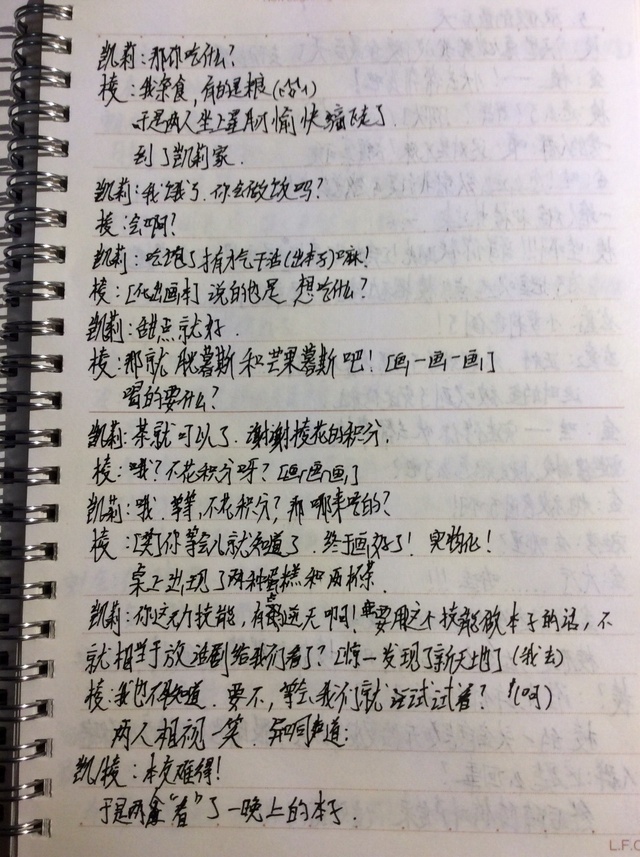 凯莉：那你吃什么？
棱：我杂食，有的是粮
于是两人坐上星月愉快缩飞走了．
到了凯莉家．
凯莉：我饿了．你会做饭吗？
棱：会啊？
凯莉：吃饱了才有力气干活(出本子)嘛！
棱：[化出画本] 说的也是 想吃什么？
凯莉：甜点就好．
棱：那就 慕斯和芒果慕斯吧！[画一画一画]
喝的要什么？
凯莉：茶就可以了．谢谢棱花的积分．
棱：哦？不花积分呀？[画画画]
凯莉：哦．等等，不花积分？那哪来吃的？
棱：[笑]你等会儿就知道了．终于画好了！实物化！
桌上出现了两种蛋糕和两杯茶．
凯莉：你这个技能，有点逆天啊！要用这个技能做本子的话，不
就相当于放活剧给我们看了？[惊一发现了新天地了(我去)
棱：我也不知道．要不，等会我们就试试看？
两人相视一笑．异口同声道：
凯/棱：本皮难得！
于是两 "看"了一晚上的本子．
L.F.C